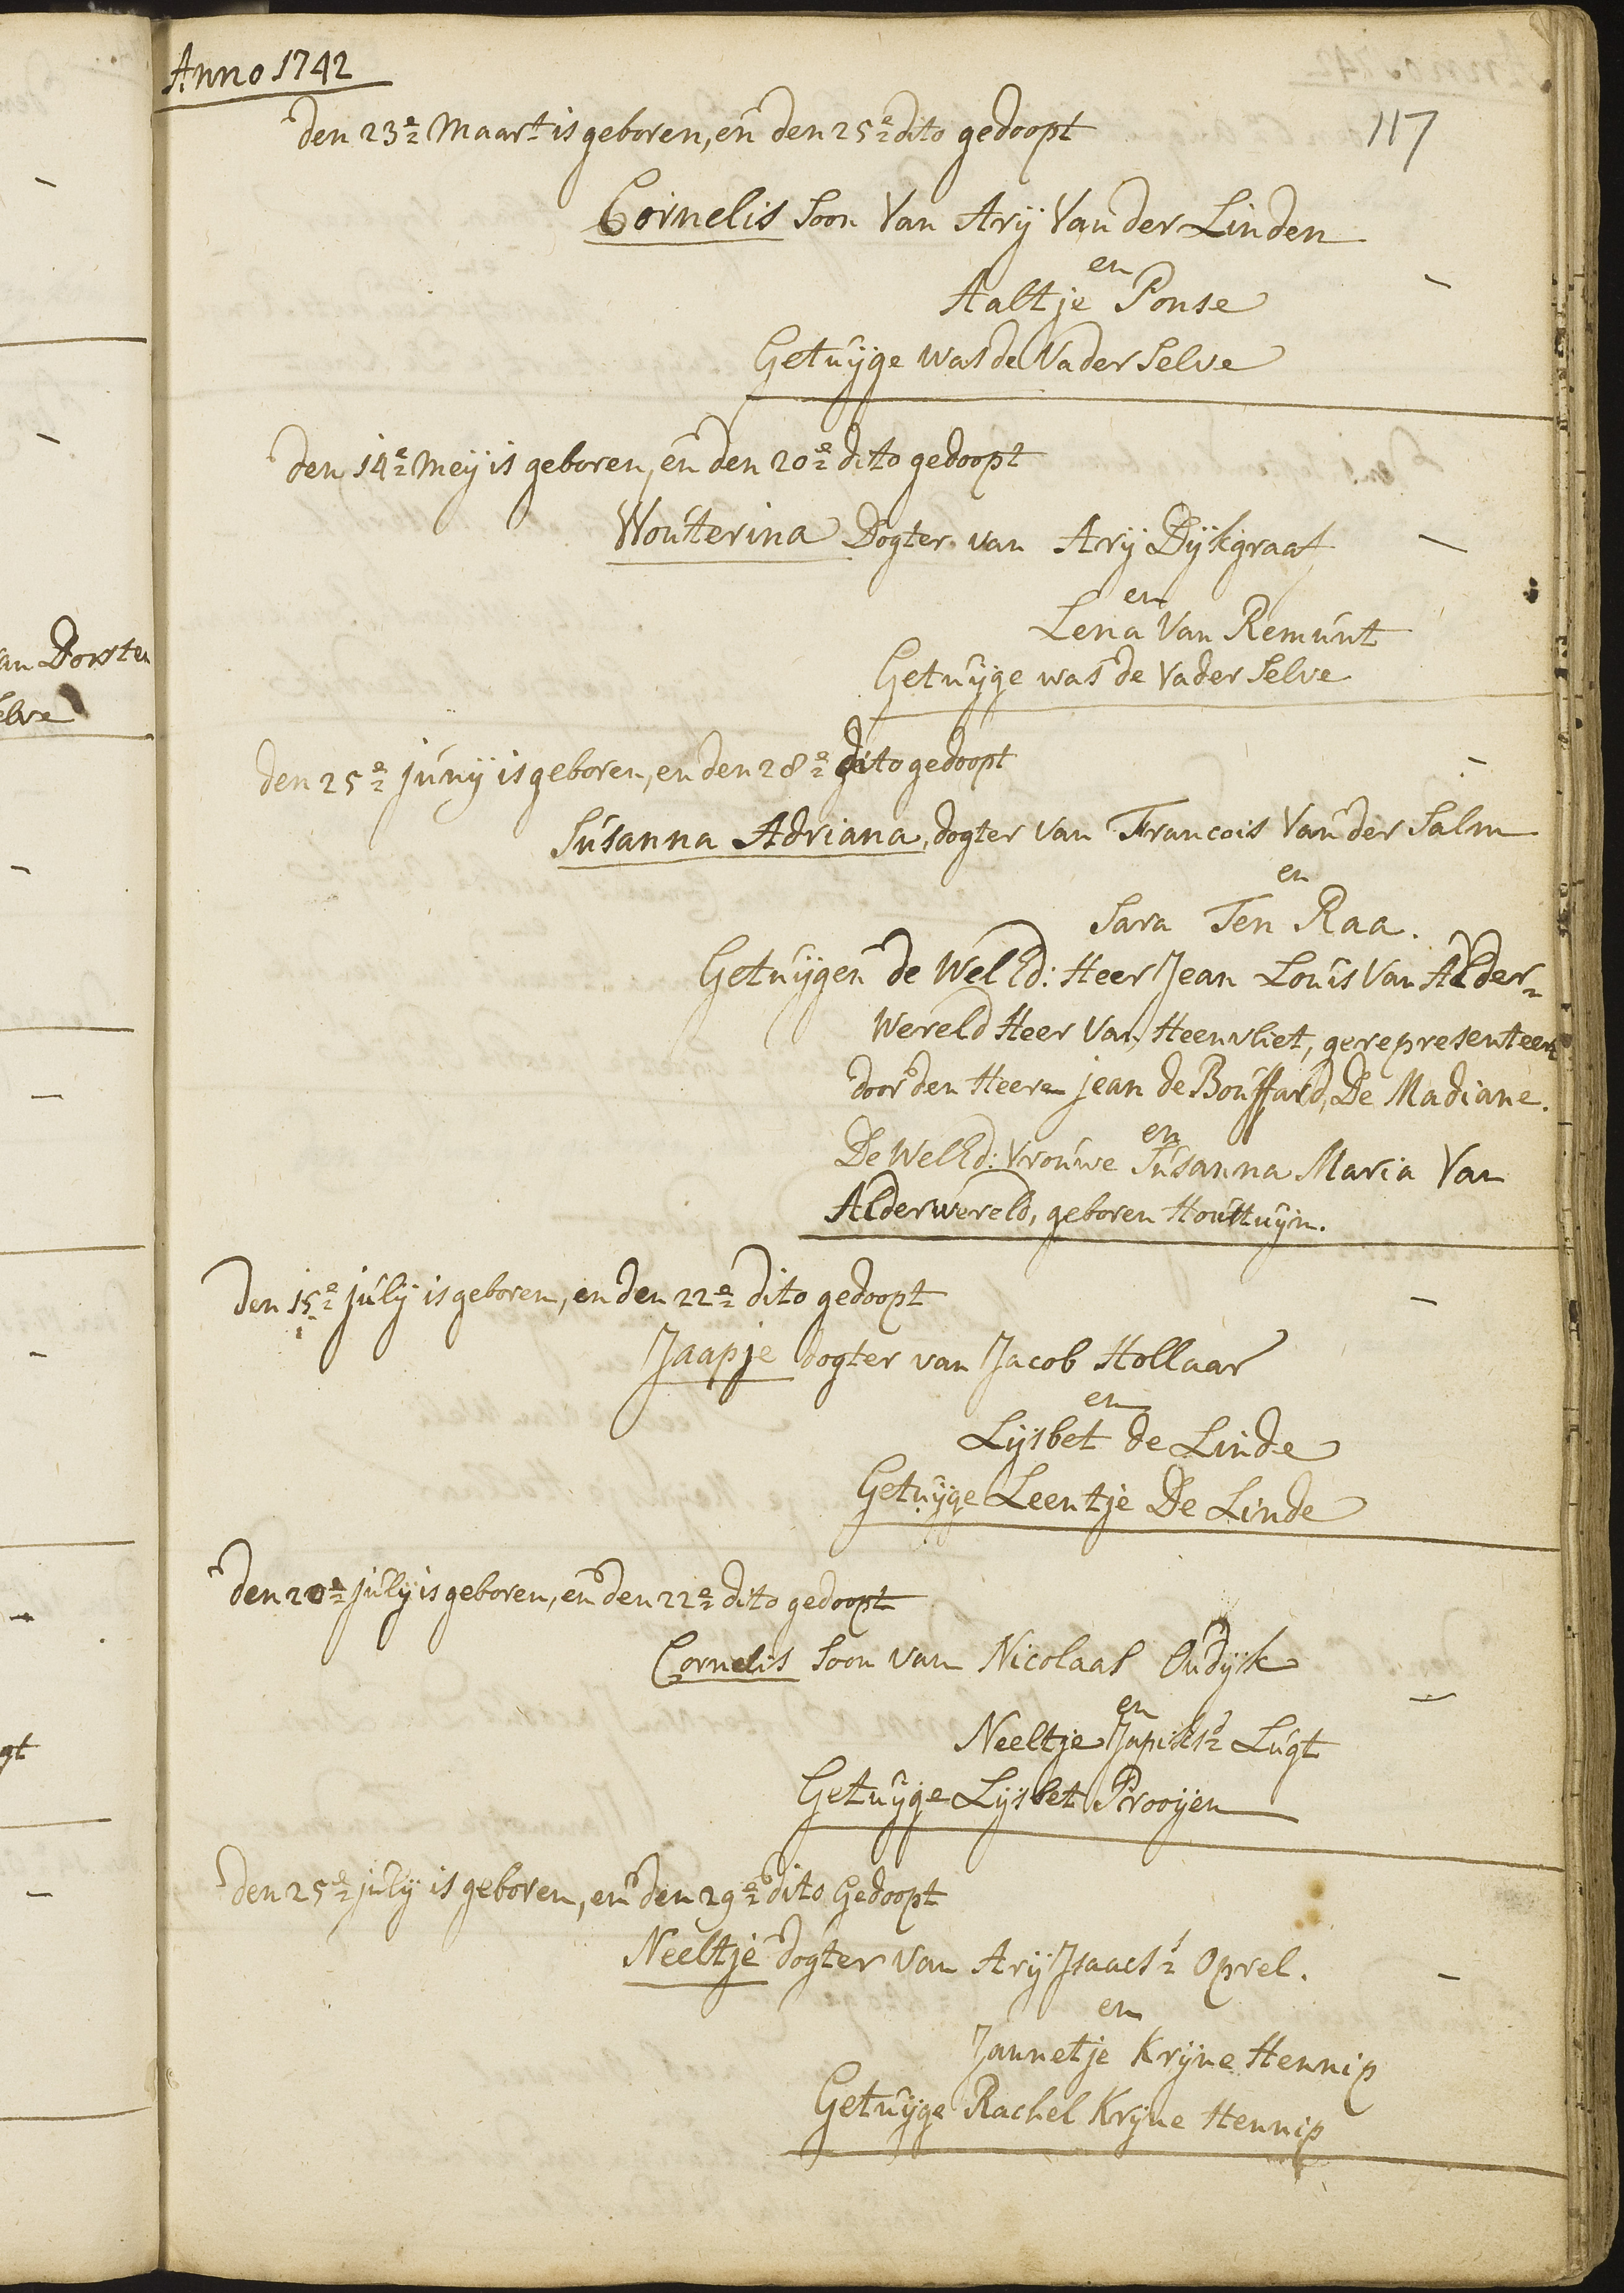 Anno 1742
117
den 23e Maart is geboren, en den 25e dito gedoopt
Cornelis Soon Van Arij Van der Linden
en
Aaltje Ponse
Getuijge was de Vader Selve
den 14e Meij is geboren, en den 20e dito gedoopt
Wouterina Dogter van Arij Dijkgraaf
en
Lena Van Remunt
Getuijge was de Vader Selve
den 25e junij is geboren, en den 28e dito gedoopt
Susanna Adriana, dogter van Francois Van der Salm
en
Sara Ten Raa.
Getuijgen de Wel Ed: Heer Jean Louis Van Alder=
Wereld Heer Van Heenvliet, gerepresenteert
door den Heere jean de Bouffard, De Madiane.
en
De Wel Ed: Vrouwe Susanna Maria Van
Alderwereld, geboren Houttuijn.
den 15e julij is geboren, en den 22e dito gedoopt
Jaapje dogter van Jacob Hollaar
en
Lijsbet de Linde
Getuijge Leentje De Linde
den 20e julij is geboren, en den 22e dito gedoopt
Cornelis Soon van Nicolaas Oudijk
en
Neeltje Lugt
Getuijge Lijsbet Prooijen
den 25e julij is geboren, en den 29e dito Gedoopt
Neeltje dogter van Arij Isaacs Oprel.
en
Jannetje Krijne Hennip
Getuijge Rachel Krijne Hennip
an Dorsten
elve
gt